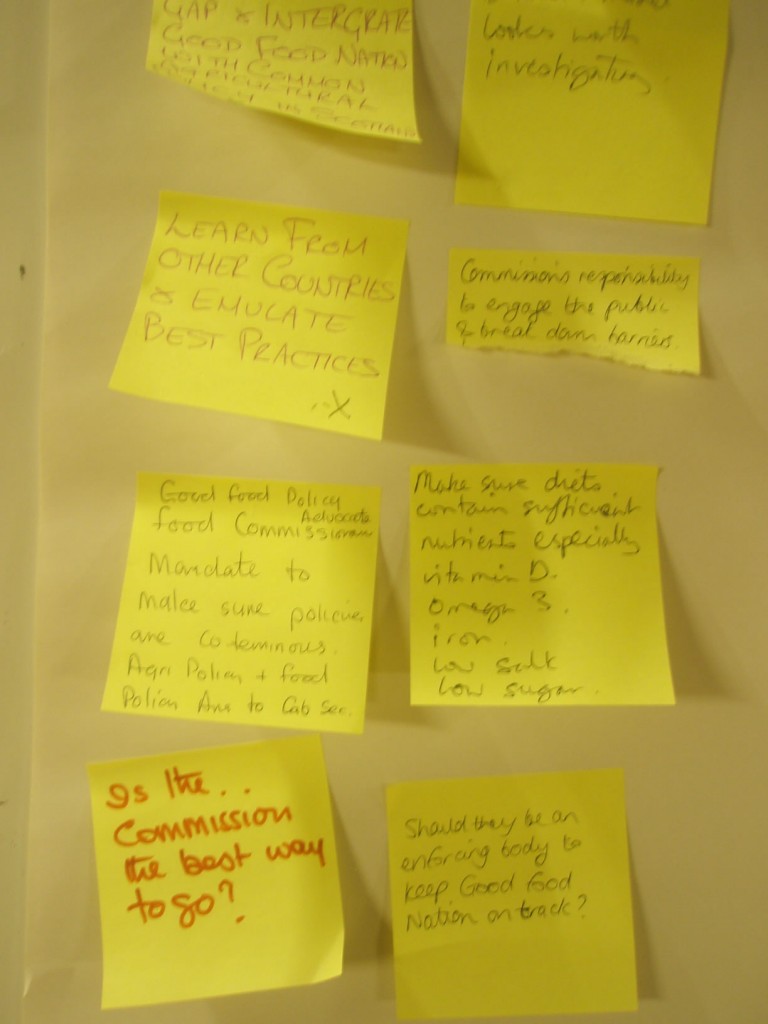 GAP & INTERGRATE
GOOD FOOD NATION
WITH COMMON
AGRICULTURAL
IN SCOTLAND
looks worth
investigating
LEARN FROM
OTHER COUNTRIES
& EMULATE
BEST PRACTICES
X
Commission's responsibility
to engage the public
& break down barriers.
Good food Policy
Advocate
food Commissioner
Mandate to
make sure policies
are coteminous.
Agri Policy + food
Policy Ans to Cab Sec.
Make sure diets
contain sufficient
nutrients especially
vitamin D.
omega 3.
iron.
low salt
low sugar.
Is the..
Commission
the best way
to go?
Should they be an
enforcing body to
keep Good Food
Nation on track?